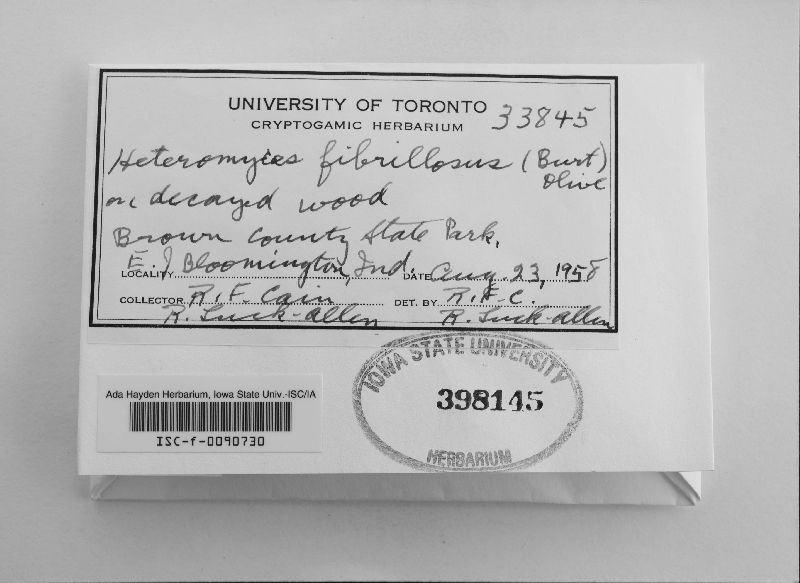 UNIVERSITY OF TORONTO
CRYPTOGAMIC HERBARIUM
33845
Heteromyces fibrillosus (Burt)
Olive
on decayed wood
Brown County State Park,
LOCALITY E. of Bloomington, Ind. DATE Aug. 23, 1958
COLLECTOR R. F. Cain DET. BY R. F. C.
R. Luck-Allen R. Luck-Allen
IOWA STATE UNIVERSITY
398145
HERBARIUM
Ada Hayden Herbarium, Iowa State Univ.-ISC/IA
ISC-f-0090730